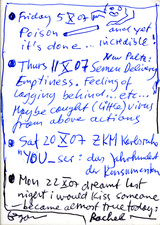 Friday 5 X 07
Poison and yet
it's done... incredible!
Thurs 11 X 07 New Palette:
Semen Delivery
Emptiness. Feeling of
lagging behind... etc...
Maybe cought (little) virus
from above actions
Sat 20 X 07 ZKM Karlsruhe
"YOU_ser: das Jahrhundert
der Konsumenten
Mon 22 X 07 dreamt last
night i would kiss someone
— became almost true today:
Rachel!